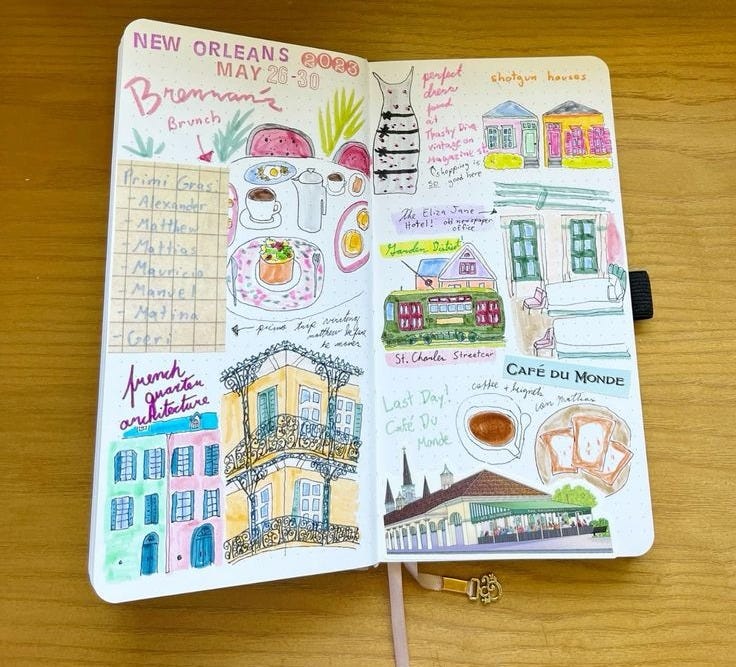 NEW ORLEANS 2023
MAY 26-30
Brennan's
Brunch
Primi Gras
- Alexander
- Matthew
- Mattias
- Mauricio
- Manuel
- Matina
- Geri
primo trip visiting
matthew before
he moves
french
quarter
architecture
perfect
dress
found
at
Trashy Diva
vintage on
Magazine st
shopping is
so good here
shotgun houses
The Eliza Jane
Hotel! old newspaper
office
Garden District
St. Charles Streetcar
CAFÉ DU MONDE
coffee + beignets
con Mattias
Last Day:
Café Du
Monde